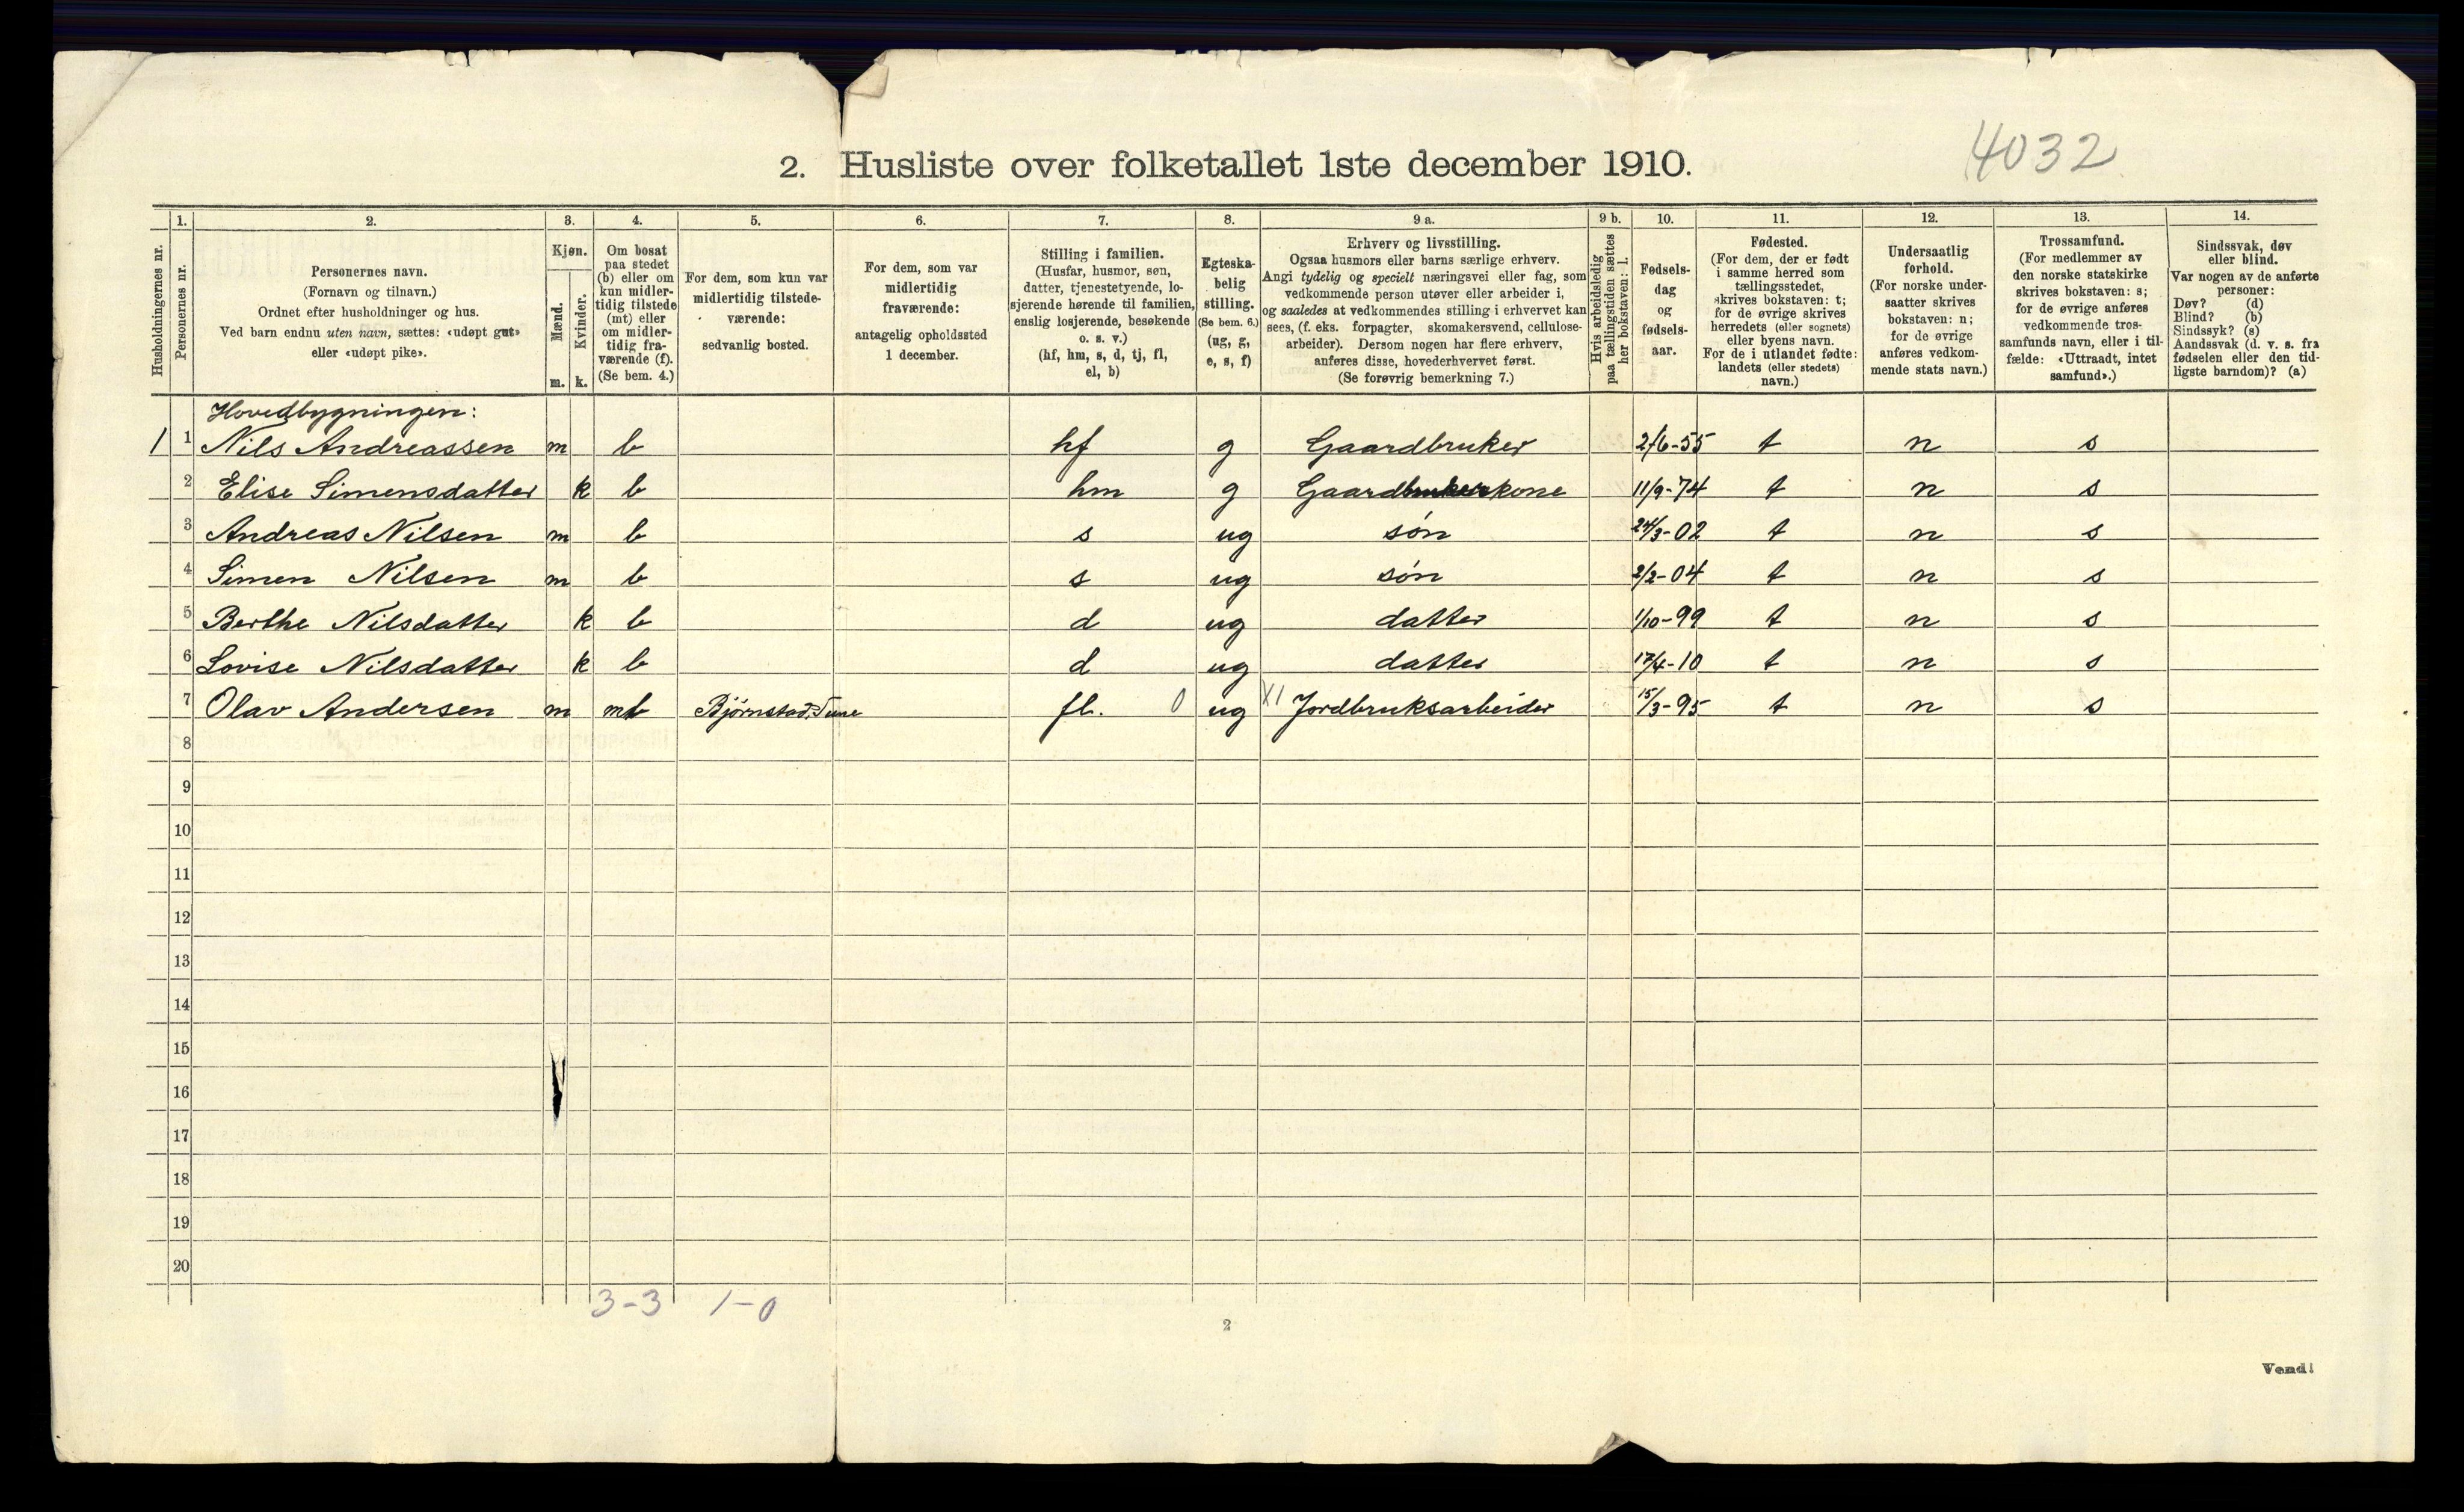 4032
2. Husliste over folketallet 1ste december 1910.
Husholdningernes nr.
1.
Personernes nr.
2.
Personernes navn.
(Fornavn og tilnavn.)
Ordnet efter husholdninger og hus.
Ved barn endnu uten navn, sættes: «udøpt gut»
eller «udøpt pike».
3.
Kjøn.
Mænd.
Kvinder.
m. k.
4.
Om bosat
paa stedet
(b) eller om
kun midler-
tidig tilstede
(mt) eller
om midler-
tidig fra-
værende (f).
(Se bem. 4.)
5.
For dem, som kun var
midlertidig tilstede-
værende:
sedvanlig bosted.
6.
For dem, som var
midlertidig
fraværende:
antagelig opholdssted
1 december.
7.
Stilling i familien.
(Husfar, husmor, søn,
datter, tjenestetyende, lo-
sjerende hørende til familien,
enslig losjerende, besøkende
o. s. v.)
(hf, hm, s, d, tj, fl,
el, b)
8.
Egteska-
belig
stilling.
(Se bem. 6.)
(ug, g,
e, s, f)
9 a.
Erhverv og livsstilling.
Ogsaa husmors eller barns særlige erhverv.
Angi tydelig og specielt næringsvei eller fag, som
vedkommende person utøver eller arbeider i,
og saaledes at vedkommendes stilling i erhvervet kan
sees, (f. eks. forpagter, skomakersvend, cellulose-
arbeider). Dersom nogen har flere erhverv,
anføres disse, hovederhvervet først.
(Se forøvrig bemerkning 7.)
9 b.
Hvis arbeidsledig
paa tællingstiden sættes
her bokstaven: l.
10.
Fødsels-
dag
og
fødsels-
aar.
11.
Fødested.
(For dem, der er født
i samme herred som
tællingsstedet,
skrives bokstaven: t;
for de øvrige skrives
herredets (eller sognets)
eller byens navn.
For de i utlandet fødte:
landets (eller stedets)
navn.)
12.
Undersaatlig
forhold.
(For norske under-
saatter skrives
bokstaven: n;
for de øvrige
anføres vedkom-
mende stats navn.)
13.
Trossamfund.
(For medlemmer av
den norske statskirke
skrives bokstaven: s;
for de øvrige anføres
vedkommende tros-
samfunds navn, eller i til-
fælde: «Uttraadt, intet
samfund».)
14.
Sindssvak, døv
eller blind.
Var nogen av de anførte
personer:
Døv? (d)
Blind? (b)
Sindssyk? (s)
Aandssvak (d. v. s. fra
fødselen eller den tid-
ligste barndom)? (a)
Hovedbygningen:
1 1 Nils Andreassen m b hf g Gaardbruker 2/6-55 t n s
2 Elise Simensdatter k b hm g Gaardbrukerkone 11/9-74 t n s
3 Andreas Nilsen m b s ug søn 24/3-02 t n s
4 Simen Nilsen m b s ug søn 2/2-04 t n s
5 Berthe Nilsdatter k b d ug datter 1/10-99 t n s
6 Lovise Nilsdatter k b d ug datter 17/4-10 t n s
7 Olav Andersen m mt Bjørnstad, Tune fl. 0 ug X1 Jordbruksarbeider 15/3-95 t n s
8
9
10
11
12
13
14
15
16
17
18
19
20
3-3 1-0
2
Vend!